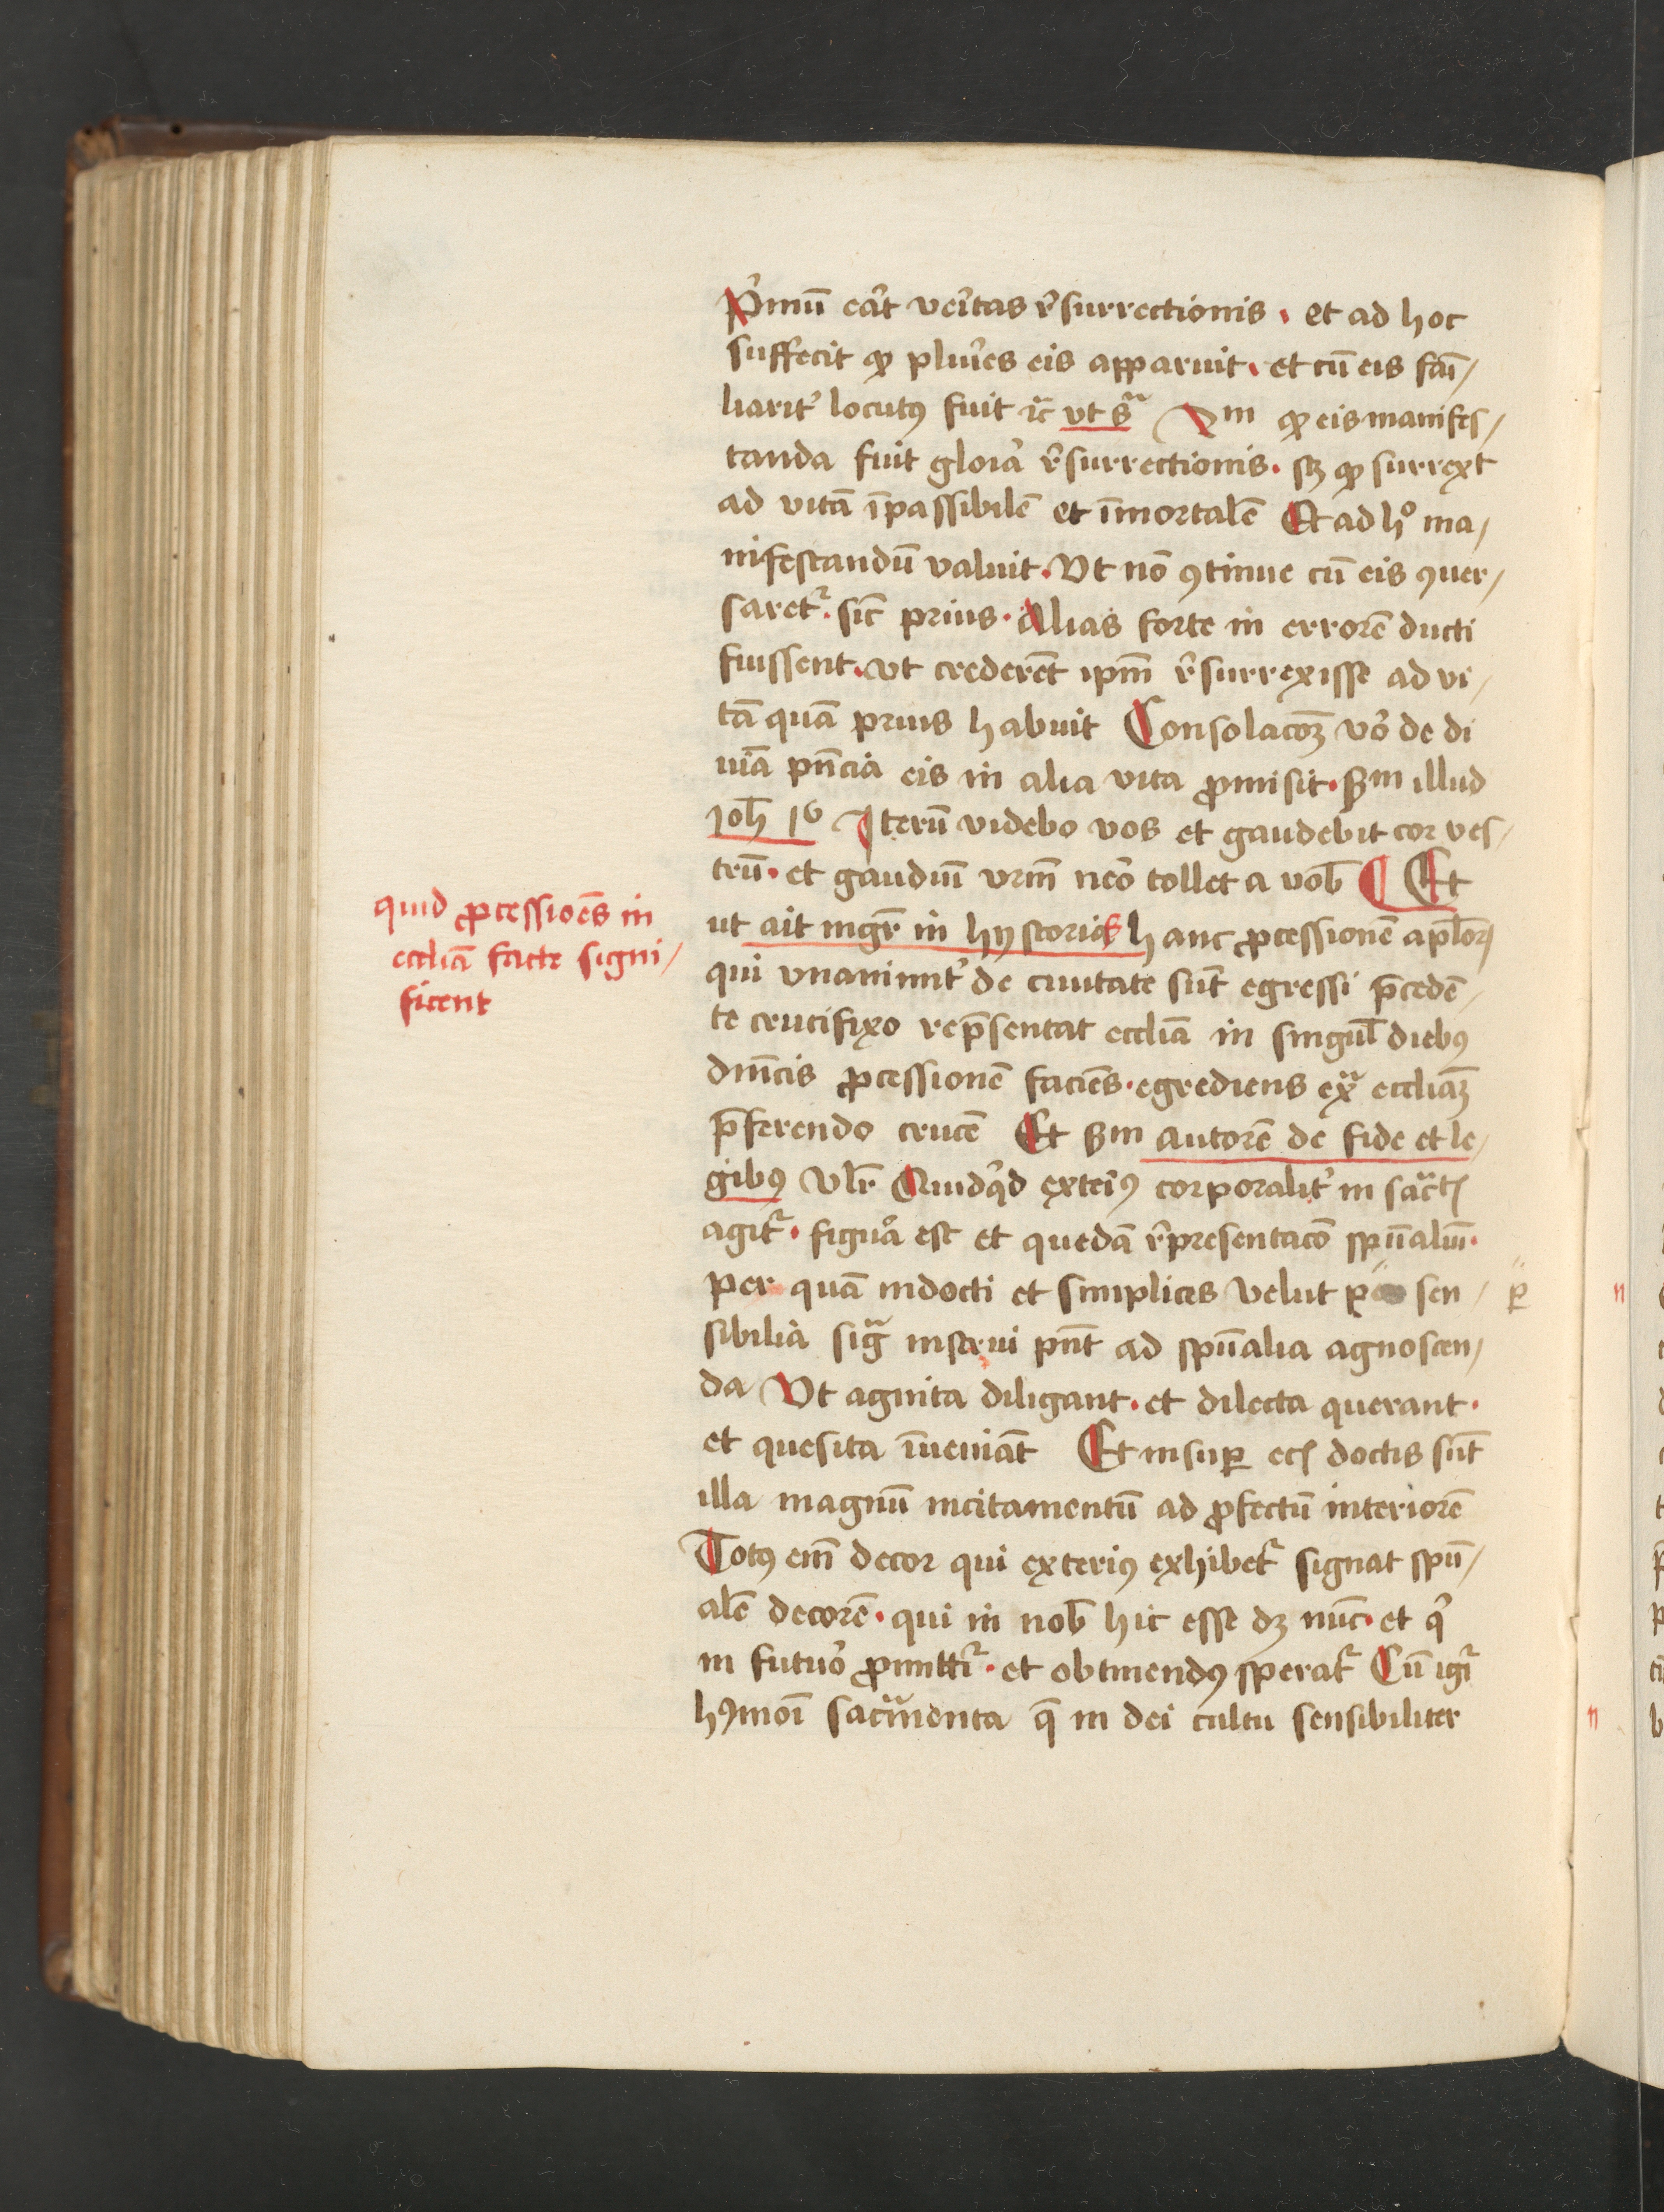 P'mū eāt veītas r̄surrectionis · et ad hoc
suffecit qꝫ pluīes eis apparuit · et cū eis fai͞/
liarit' locutꝰ fuit ⁊c̄ vt sᵃ 2m qꝫ eis manifes/
tanda fuit gloīa r̄surrectionis · sꝫ qꝫ surrexit
ad vitā īpassibilē et īmortalē Et ad hͦ ma/
nifestandū valuit · Vt nō ꝯtinue cū eis ꝯuer/
saret᷑ · sic̄ prius · Alias forte in errorē ducti
fuissent · vt crederēt ipm̄ r̄surrexisse ad vi/
tā quā prius habuit Consolacōꝫ vō de di
uīa pn̄cia eis in alia vita ꝓmisit · sm̄ illud
Joh̄ 16 Iterū videbo vos et gaudebit cor ves/
trū · et gaudiū vrm̄ nēo tollet a vob̄ ¶ Et
ut ait mgr̄ in hystoriis hanc ꝓcessionē apl̄oꝝ
qui vnanimit' de ciuitate sūt egressi p̄cedē/
te crucifixo rep̄sentat eccliā in singul̄ diebꝰ
dn̄icis ꝓcessionē faciēs · egrediens exᵃ eccliaꝫ
p̄ferendo crucē Et sm̄ autorē de fide et le/
gibꝰ vlr̄ Quidq'd exteriꝰ corporalit' in sac̄tꝭ
agit᷑ · figuā est et quedā r̄presentacō spūaliū ·
per quā indocti et simplices velut ꝑ sen/ ꝑ
sibilia sigᵃ instrui pn̄t ad spūalia agnoscen/
da Vt agnita diligant · et dilecta querant ·
et quesita īueniāt Et insuꝑ eciꝭ doctis sūt
illa magnū incitamentū ad ꝓfectū interiorē
Totꝰ em̄ decor qui exteriꝰ exhibet᷑ signat spū/
alē decorē · qui in nob̄ hic esse dꝫ nūc · et q'
in futuō ꝓmittit᷑ · et obtinendꝰ sperat᷑ Cū igi᷑
hꝰmoi sacᵃmenta q̄ in dei cultu sensibiliter
quid ꝓcessioēs in
eccliā facte signi/
ficent